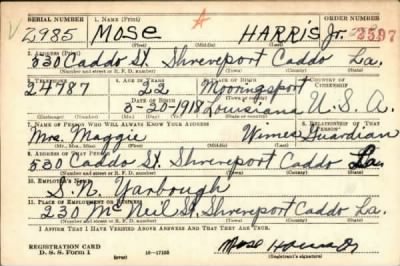 SERIAL NUMBER 1. NAME (Print) ORDER NUMBER
2985 MOSE HARRIS Jr. 3597
(First) (Middle) (Last)
2. ADDRESS (Print)
530 Caddo St. Shreveport Caddo La.
(Number and street or R. F. D. number) (Town) (County) (State)
3. TELEPHONE 4. AGE IN YEARS 5. PLACE OF BIRTH 6. COUNTRY OF CITIZENSHIP
24787 22 Mooringsport
DATE OF BIRTH
3-20-1918 Louisiana U.S.A.
7. NAME OF PERSON WHO WILL ALWAYS KNOW YOUR ADDRESS 8. RELATIONSHIP OF THAT PERSON
Mrs. Maggie Wimes Guardian
(Mr., Mrs., Miss) (First) (Middle) (Last)
9. ADDRESS OF THAT PERSON
530 Caddo St. Shreveport Caddo La.
(Number and street or R. F. D. number) (Town) (County) (State)
10. EMPLOYER'S NAME
S.N. Yarbough
11. PLACE OF EMPLOYMENT OR BUSINESS
230 McNeil St. Shreveport Caddo La.
(Number and street or R. F. D. number) (Town) (County) (State)
I AFFIRM THAT I HAVE VERIFIED ABOVE ANSWERS AND THAT THEY ARE TRUE.
REGISTRATION CARD
D. S. S. Form 1 16—17105 (Registrant's signature)